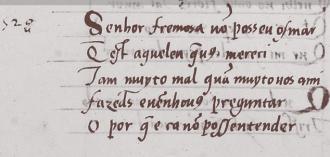 528
Senhor fremosa nō posseu osmar
Q̄ est aquelen q̄ uꝯ mereci
Tam muyto mal quā muyto uos am
fazedꝯ en enhouꝯ preguntar
O por q̄ e ca nō poss entender